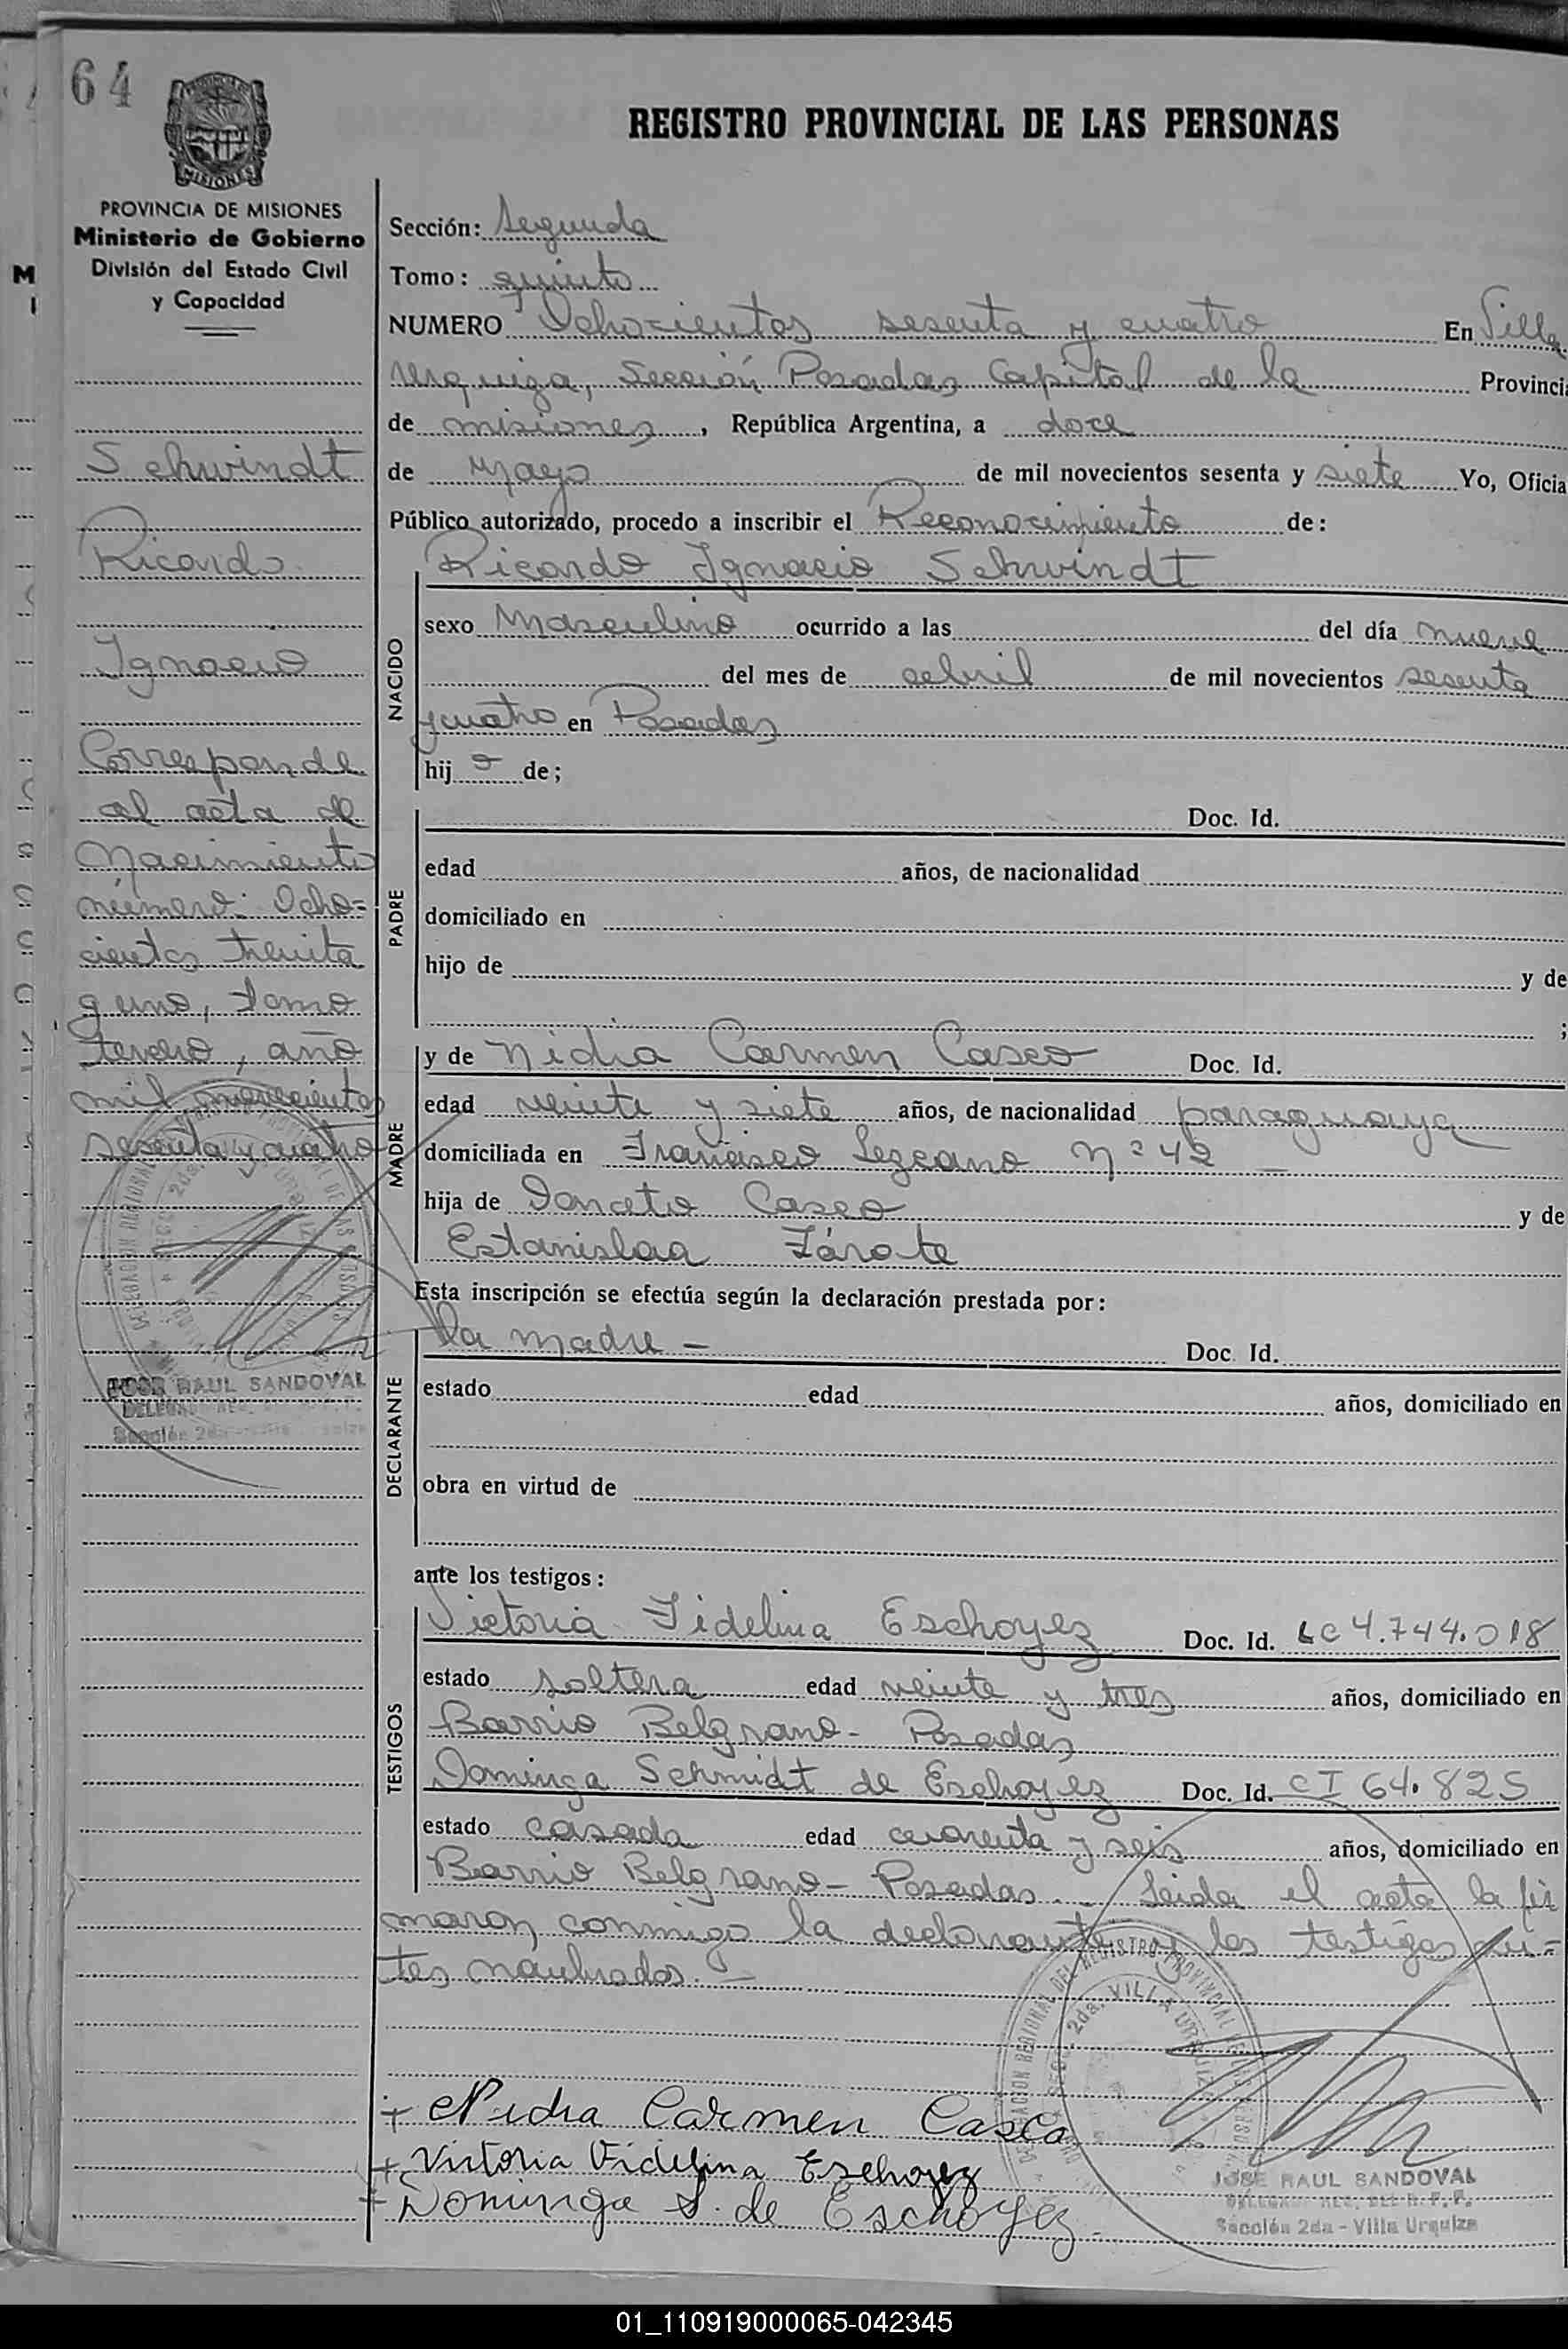 64
MISIONES
REGISTRO PROVINCIAL DE LAS PERSONAS
PROVINCIA DE MISIONES
Ministerio de Gobierno
División del Estado Civil
y Capacidad
Schwindt
Ricardo
Ignacio
Corresponde
al acta de
Nacimiento
número: Ocho=
cientos treinta
y uno, tomo
tercero, año
mil novecientos
sesenta y cuatro
JOSE RAUL SANDOVAL
Sección: Segunda
Tomo: quinto
NUMERO Ochocientos sesenta y cuatro En Villa
Urquiza, Sección Posadas Capital de la Provincia
de misiones, República Argentina, a doce
de Mayo de mil novecientos sesenta y siete Yo, Oficia
Público autorizado, procedo a inscribir el Reconocimiento de:
Ricardo Ignacio Schwindt
NACIDO
sexo Masculino ocurrido a las del día nueve
del mes de abril de mil novecientos sesenta
y cuatro en Posadas
hij o de;
PADRE
Doc. Id.
edad años, de nacionalidad
domiciliado en
hijo de y de
;
MADRE
y de Nidia Carmen Casco Doc. Id.
edad veinte y siete años, de nacionalidad paraguaya
domiciliada en Francisco Lezcano Nº 42 -
hija de Donato Casco y de
Estanislaa Zárate
Esta inscripción se efectúa según la declaración prestada por:
DECLARANTE
la madre - Doc. Id.
estado edad años, domiciliado en
obra en virtud de
ante los testigos:
TESTIGOS
Victoria Fidelina Eschoyez Doc. Id. LC 4.744.018
estado soltera edad veinte y tres años, domiciliado en
Barrio Belgrano - Posadas
Dominga Schmidt de Eschoyez Doc. Id. CI 64.825
estado casada edad cuarenta y seis años, domiciliado en
Barrio Belgrano - Posadas. - Leida el acta la fir
maron conmigo la declarante y los testigos an=
tes nombrados. -
+ Nidia Carmen Casco
+ Victoria Fidelina Eschoyez
+ Dominga S. de Eschoyez
JOSE RAUL SANDOVAL
Sección 2da - Villa Urquiza
01_110919000065-042345